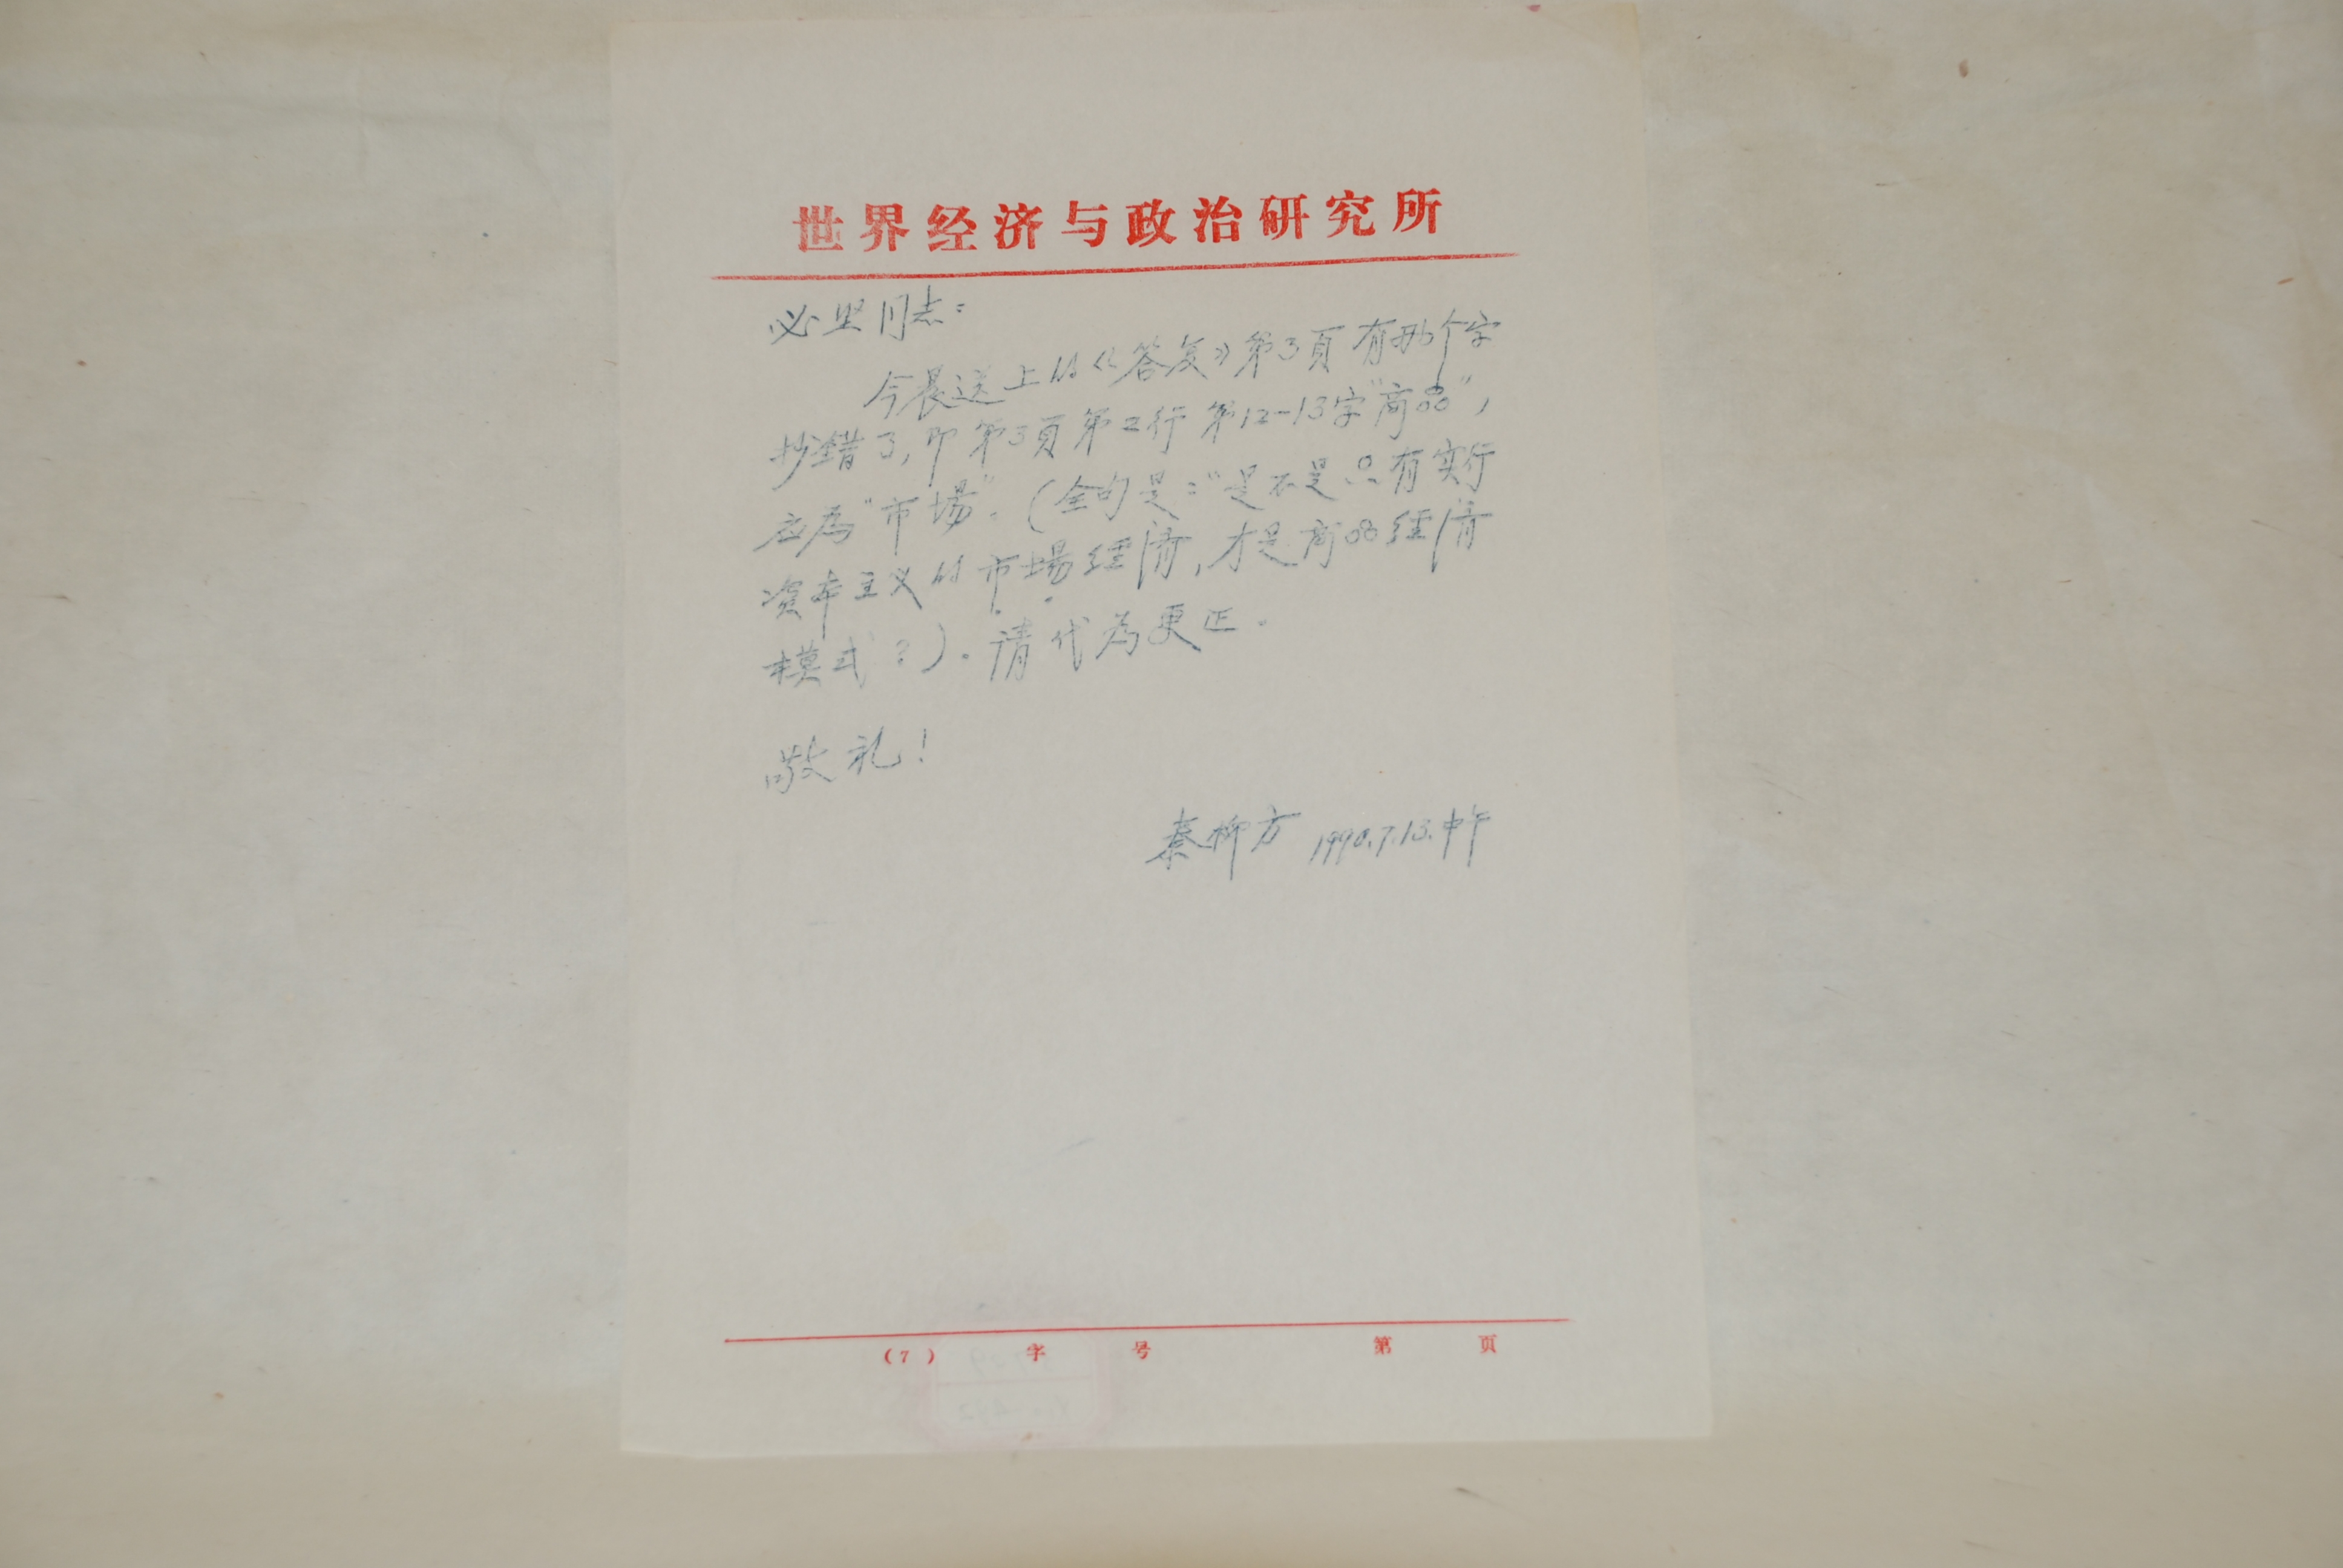 世界经济与政治研究所
必坚同志:
今晨送上的《答复》第3頁有两个字
抄错了,即第3頁第2行第12-13字"商品",
应为"市場"。(全句是:"是不是只有实行
资本主义的市場经济,才是商品经济
模式?)。请代为更正。
敬礼!
秦柳方 1990.7.13.中午
(7) 字 号 第 页